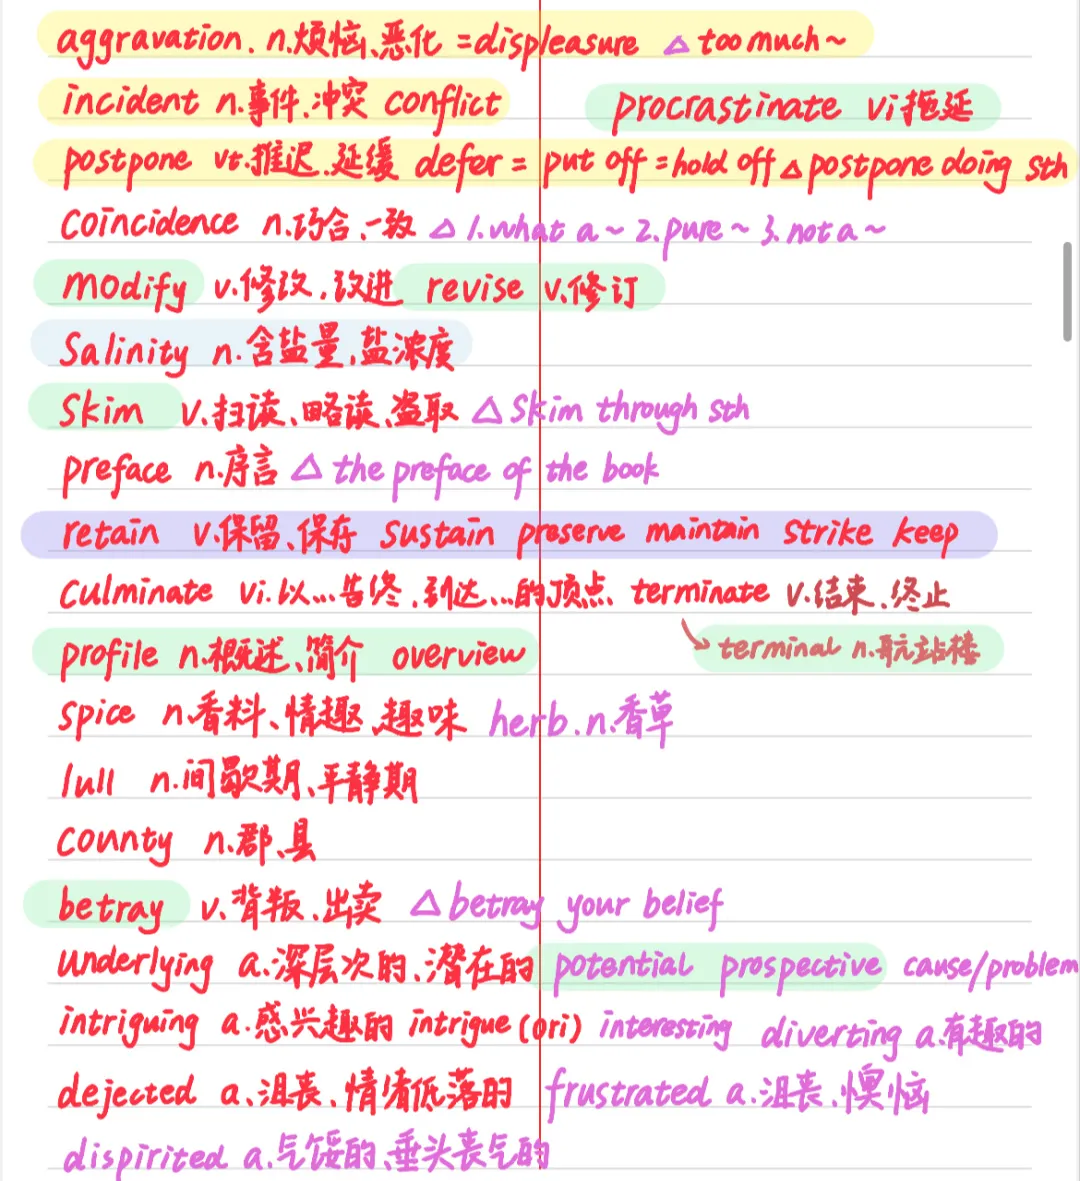 aggravation. n.烦恼、恶化 =displeasure △ too much~
incident n.事件、冲突 conflict procrastinate vi拖延
postpone vt.推迟、延缓 defer = put off =hold off △ postpone doing sth
Coincidence n.巧合、一致 △ 1.what a ~ 2.pure ~ 3.not a ~
modify v.修改、改进 revise v.修订
Salinity n.含盐量、盐浓度
Skim v.扫读、略读、盗取 △ Skim through sth
preface n.序言 △ the preface of the book
retain v.保留、保存 sustain preserve maintain strike keep
Culminate vi.以...告终、到达...的顶点 terminate v.结束、终止
profile n.概述、简介 overview → terminal n.航站楼
spice n.香料、情趣、趣味 herb.n.香草
lull n.间歇期、平静期
County n.郡、县
betray v.背叛、出卖 △ betray your belief
underlying a.深层次的、潜在的 potential prospective cause/problem
intriguing a.感兴趣的 intrigue (ori) interesting diverting a.有趣的
dejected a、沮丧、情绪低落的 frustrated a.沮丧、懊恼
dispirited a.气馁的、垂头丧气的